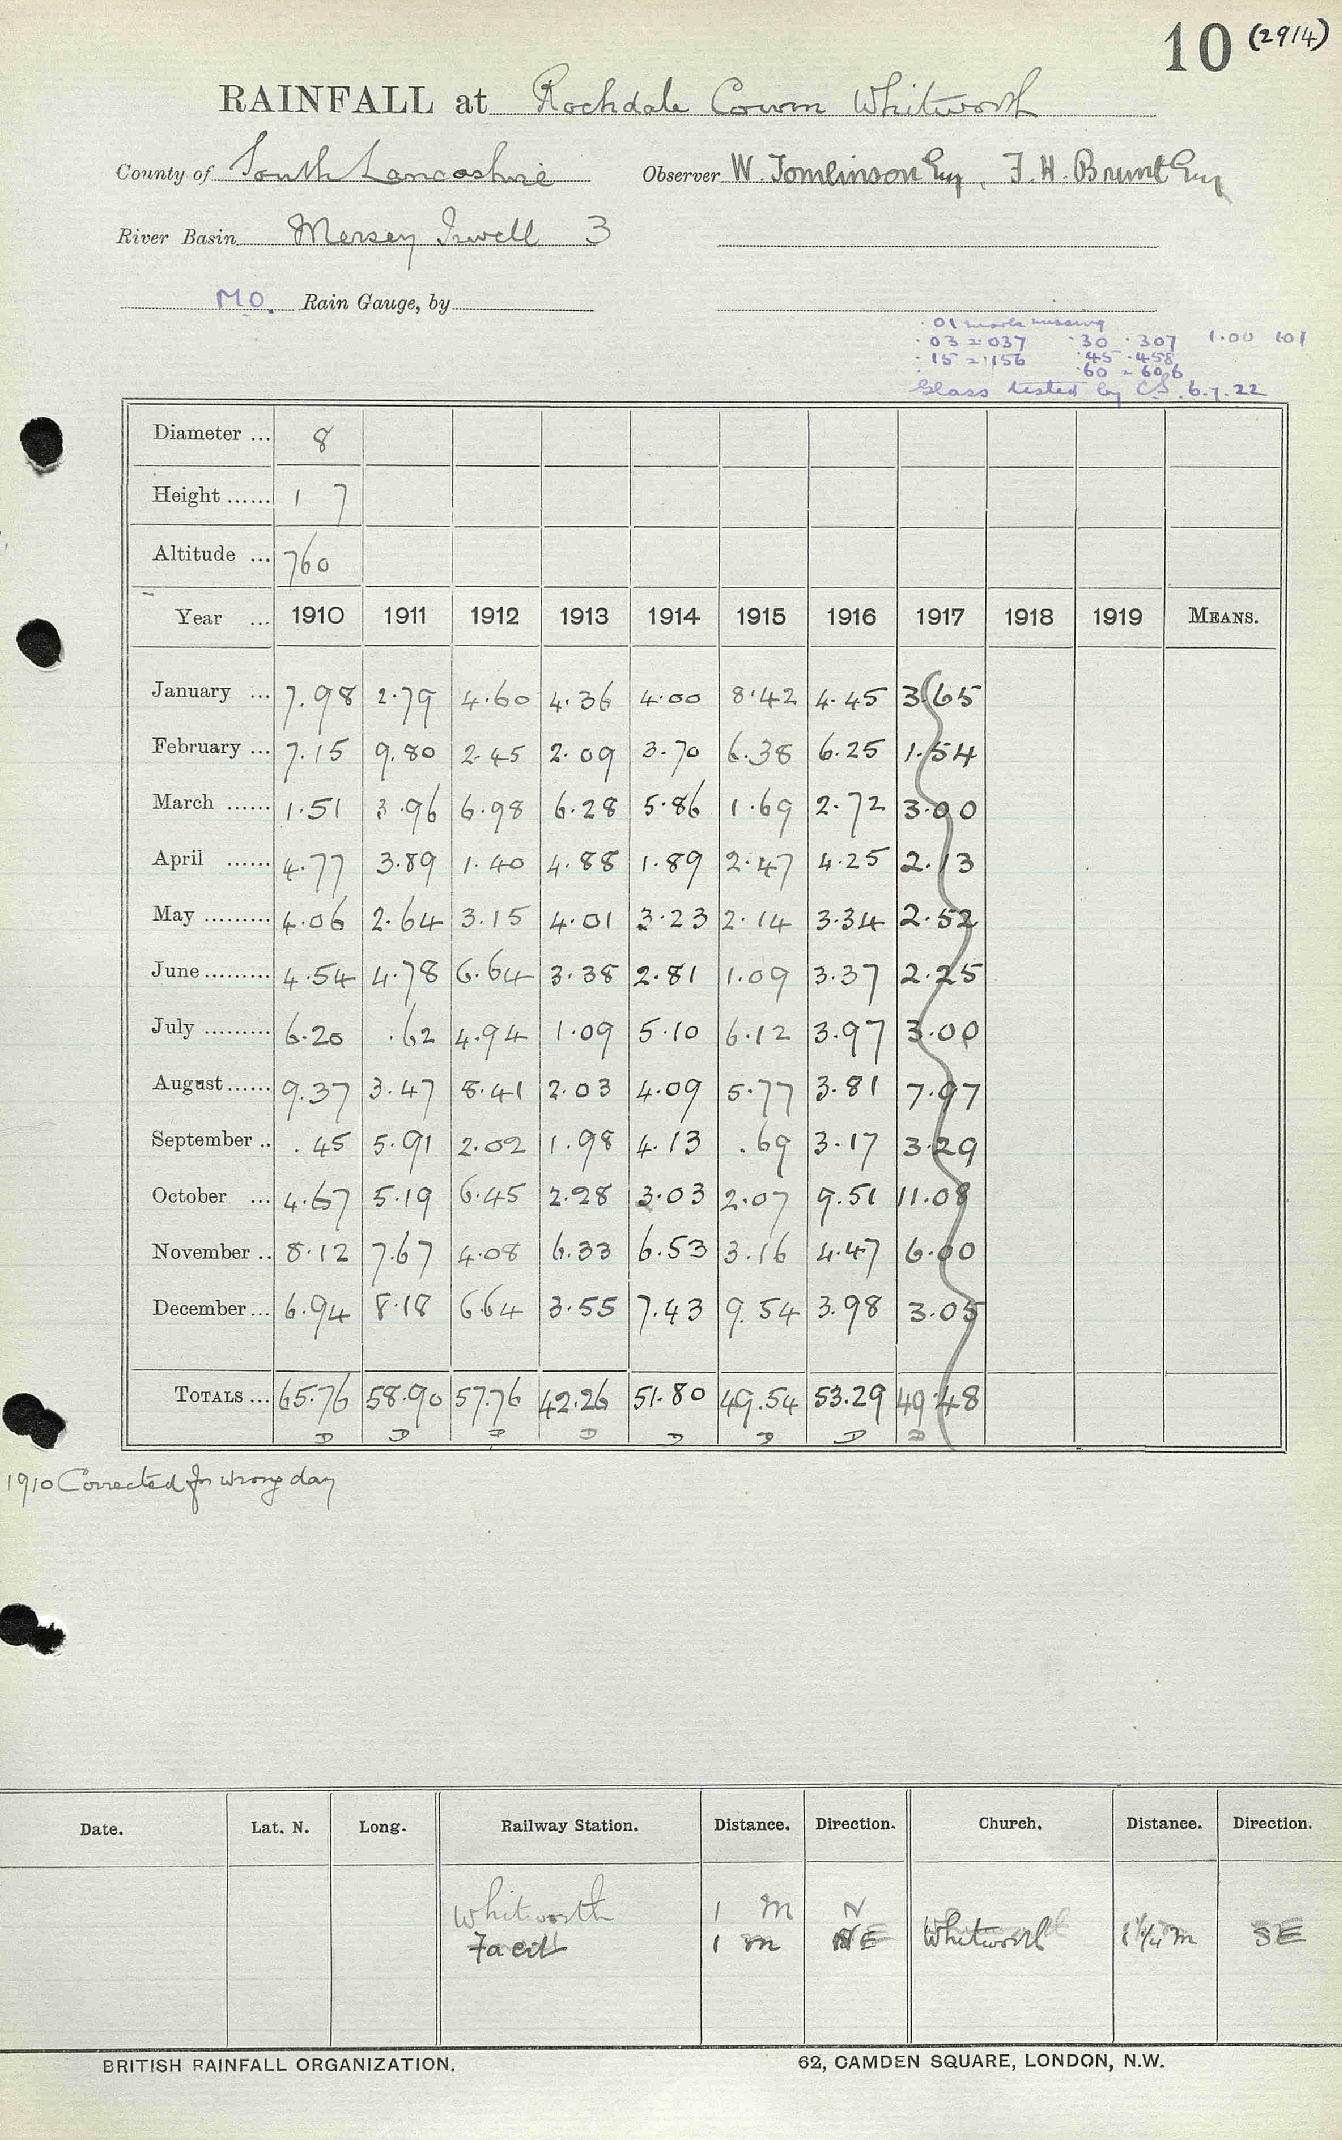 10 (2914)
RAINFALL at Rochdale Cowm Whitworth
County of South Lancashire Observer W. Tomlinson Esq, F. H. Brunt Esq
River Basin Mersey Irwell 3
MO. Rain Gauge, by
.01 mark missing
.03 = .037 .30 .307 1.00 101
.15 = .156 .45 .458
.60 = 606
Glass tested by CS. 6.7.22
Diameter ... 8
Height ...... 1 7
Altitude ... 760
Year ... 1910 1911 1912 1913 1914 1915 1916 1917 1918 1919 MEANS.
January ... 7.98 2.79 4.60 4.36 4.00 8.42 4.45 3.65
February ... 7.15 9.80 2.45 2.09 3.70 6.38 6.25 1.54
March ...... 1.51 3.96 6.98 6.28 5.86 1.69 2.72 3.00
April ...... 4.77 3.89 1.40 4.88 1.89 2.47 4.25 2.13
May ......... 4.06 2.64 3.15 4.01 3.23 2.14 3.34 2.52
June ......... 4.54 4.78 6.64 3.38 2.81 1.09 3.37 2.25
July ......... 6.20 .62 4.94 1.09 5.10 6.12 3.97 3.00
August ...... 9.37 3.47 8.41 2.03 4.09 5.77 3.81 7.97
September .. .45 5.91 2.02 1.98 4.13 .69 3.17 3.29
October ... 4.67 5.19 6.45 2.28 3.03 2.07 9.51 11.08
November .. 8.12 7.67 4.08 6.33 6.53 3.16 4.47 6.00
December ... 6.94 8.18 6.64 3.55 7.43 9.54 3.98 3.05
TOTALS ... 65.76 58.90 57.76 42.26 51.80 49.54 53.29 49.48
D D D D D D D D
1910 Corrected for wrong day
Date. Lat. N. Long. Railway Station. Distance. Direction. Church. Distance. Direction.
Whitworth 1 m N
Facit 1 m NE Whitworth 1 1/4 m SE
BRITISH RAINFALL ORGANIZATION. 62, CAMDEN SQUARE, LONDON, N.W.